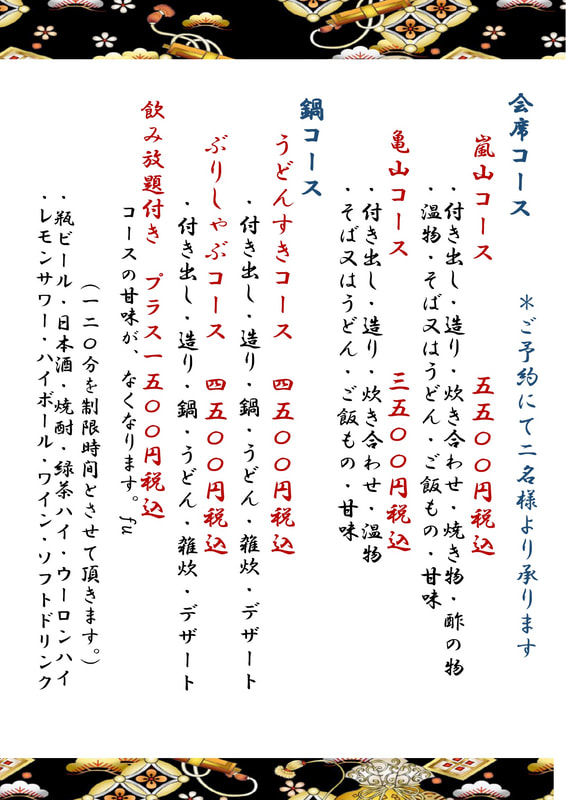 会席コース　＊ご予約にて二名様より承ります
嵐山コース　五五〇〇円税込
・付き出し・造り・炊き合わせ・焼き物・酢の物
・温物・そば又はうどん・ご飯もの・甘味
亀山コース　三五〇〇円税込
・付き出し・造り・炊き合わせ・温物
・そば又はうどん・ご飯もの・甘味
鍋コース
うどんすきコース　四五〇〇円税込
・付き出し・造り・鍋・うどん・雑炊・デザート
ぶりしゃぶコース　四五〇〇円税込
・付き出し・造り・鍋・うどん・雑炊・デザート
飲み放題付き　プラス一五〇〇円税込
コースの甘味が、なくなります。fu
（一二〇分を制限時間とさせて頂きます。）
・瓶ビール・日本酒・焼酎・緑茶ハイ・ウーロンハイ
・レモンサワー・ハイボール・ワイン・ソフトドリンク